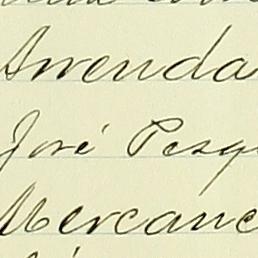 Arrenda
José Pesq
Mercanc